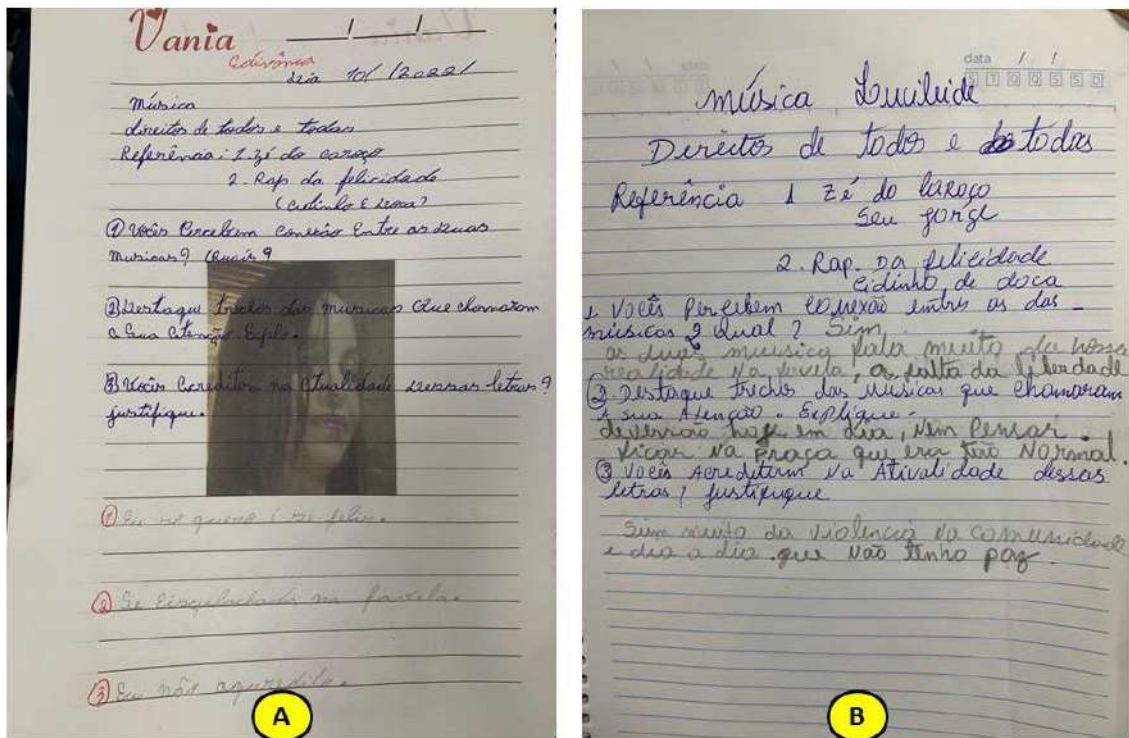 Vania / /
Edivânia
dia 10/ /2022/
Música
direitos de todos e todas
Referência: 1. zé do caroço
2. Rap da felicidade
(
① Vocês Percebem conexão Entre as duas
musicas? Quais?
② Destaque trechos das musicas Que chamaram
a Sua Atenção.
③ Vocês Acreditam na Atualidade dessas letras?
justifique.
① Eu so quero i se felis.
② na favela.
③ Eu não aquredito.
A
data / /
S T Q Q S S D
música Lucileide
Direitos de todos e todas
Referência 1 Zé do Caroço
Seu Jorge
2. Rap. Da felicidade
Cidinho de doca
1 Vocês Percebem conexão entris as das
músicas? Qual? Sim
as duas musica fala muito da nossa
realidade na favela, a falta da liberdade
②. Destaque trechos das Musicas que chamaram
A sua Atenção. Explique.
deverssão hoje em dia, Nem Pensar.
Ficar Na Praça que era tão Normal.
③ Vocês Acreditam Na Ativalidade dessas
letras? Justifique
Sim muita da violencia na comunidade
e dia a dia. que Não tenho paz.
B